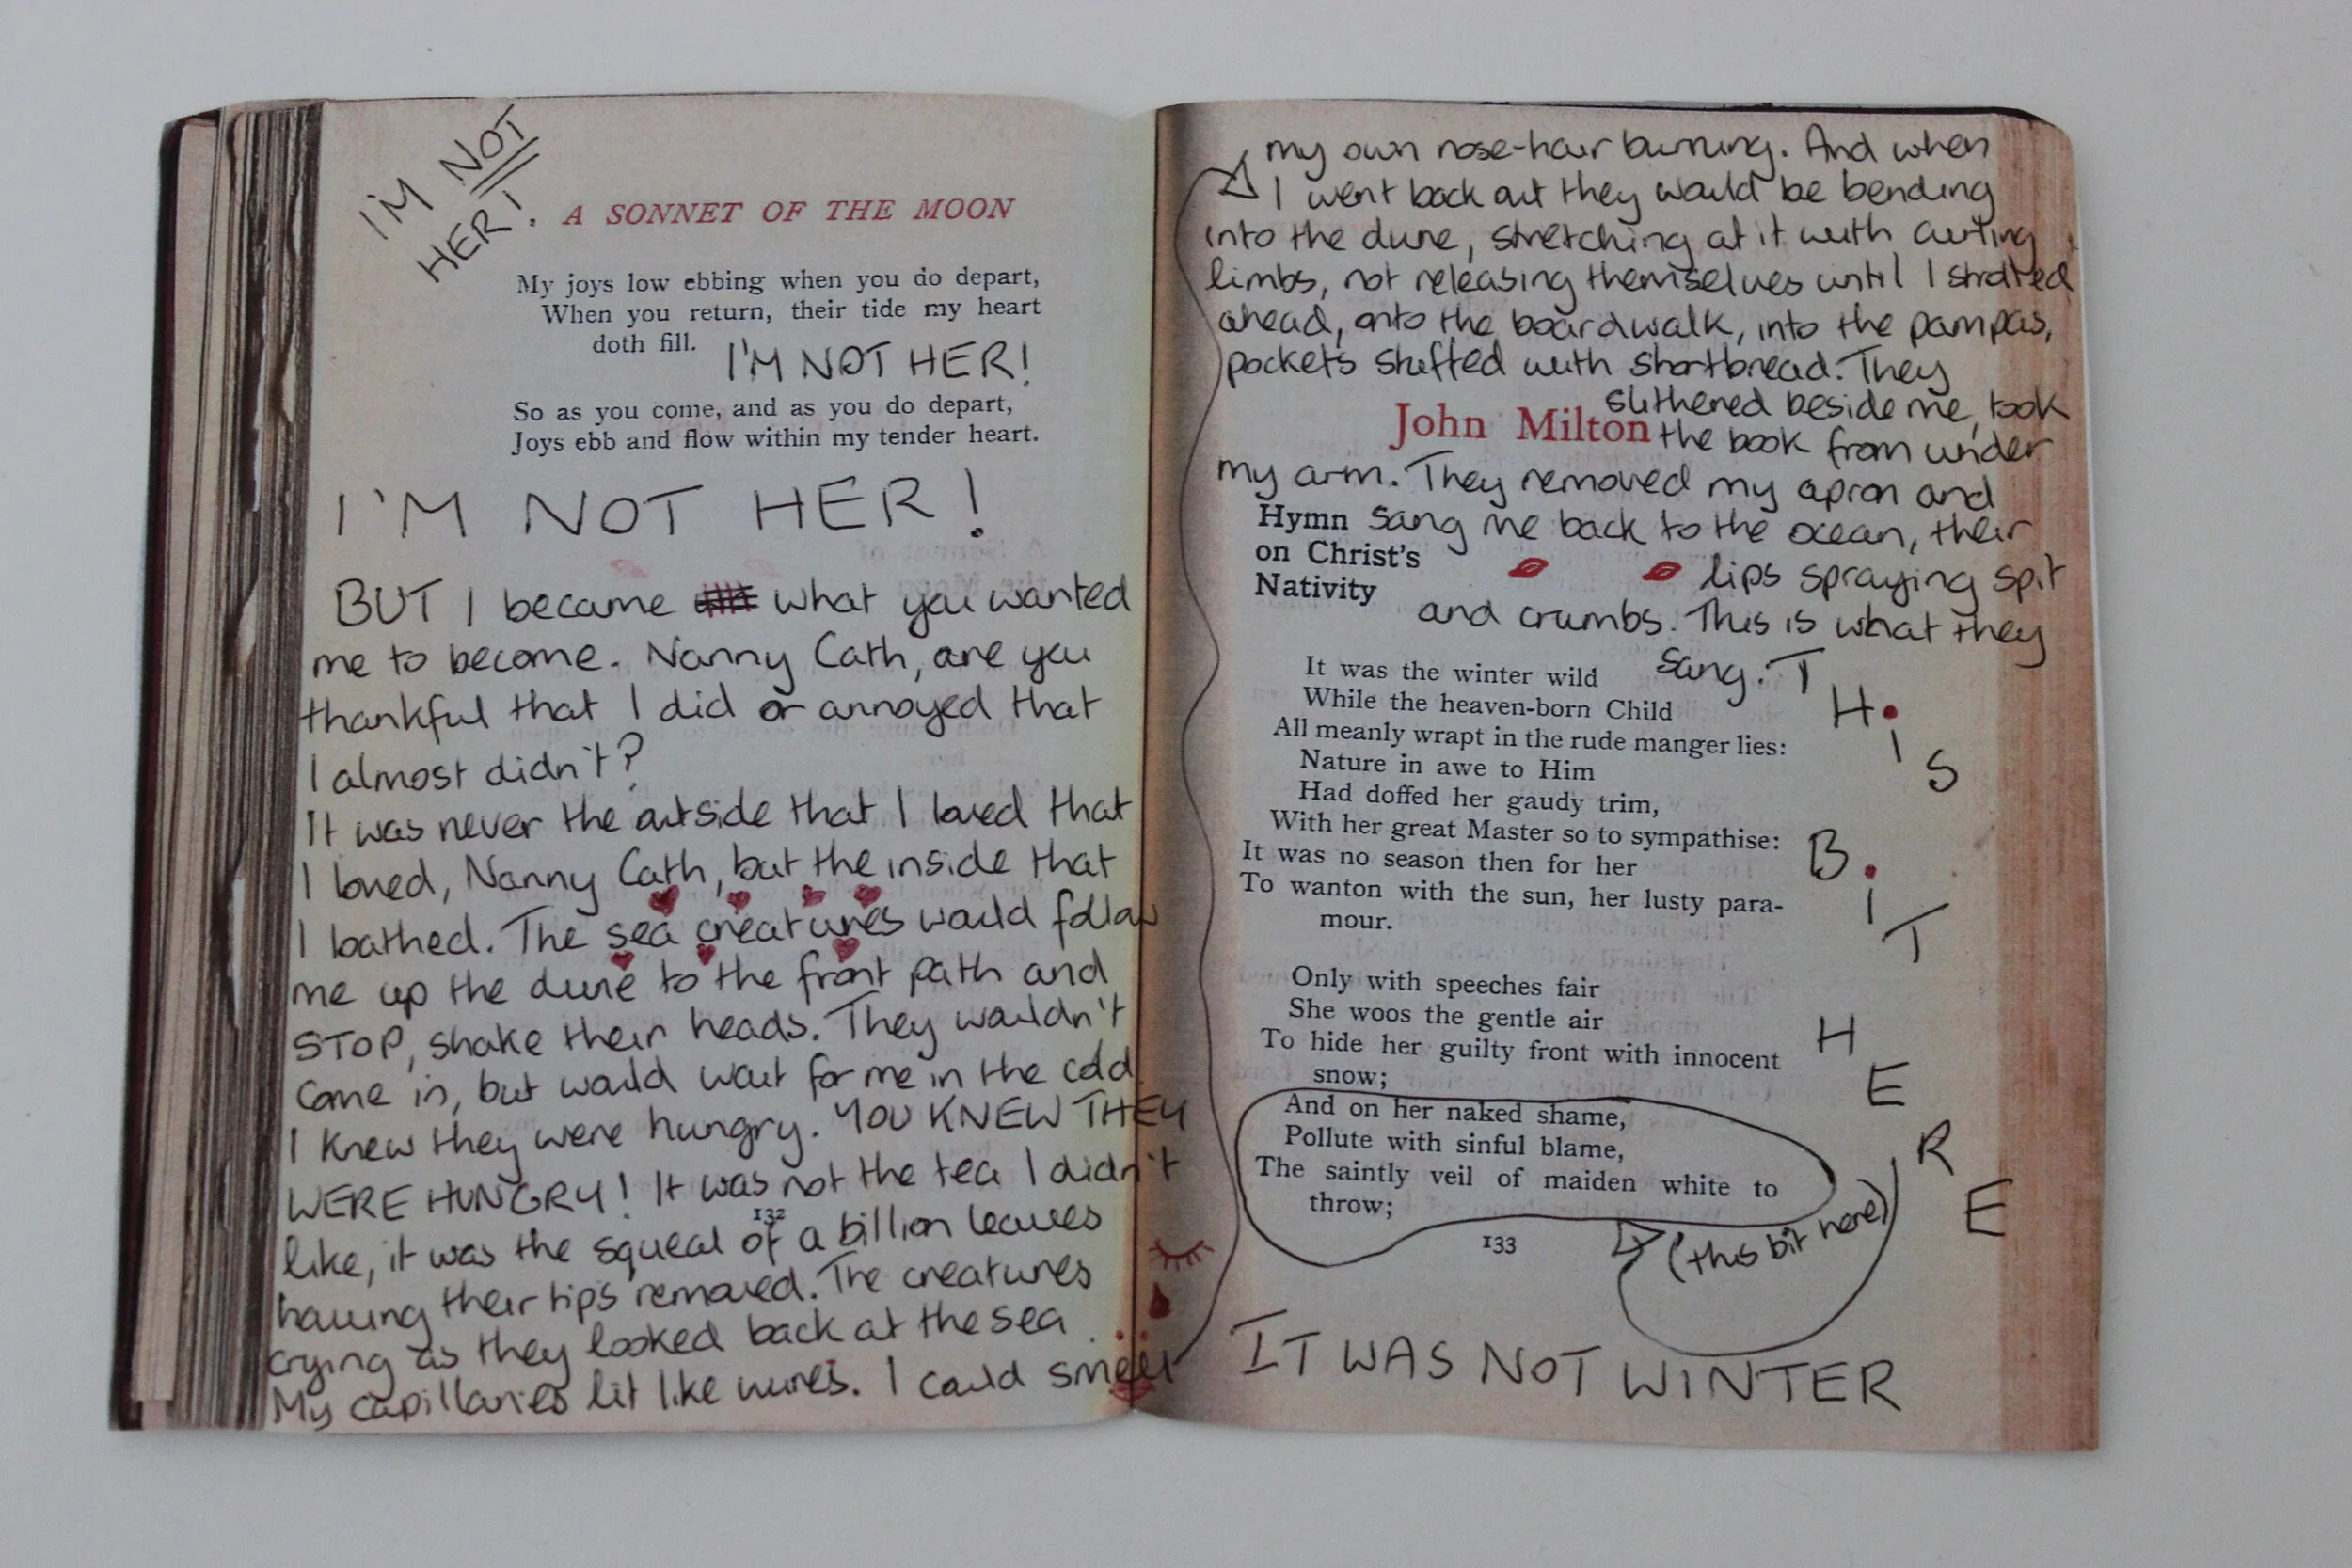 I'M NOT
HER!
. A SONNET OF THE MOON
My joys low ebbing when you do depart,
When you return, their tide my heart
doth fill.
I'M NOT HER!
So as you come, and as you do depart,
Joys ebb and flow within my tender heart.
I'M NOT HER!
BUT I became what you wanted
me to become. Nanny Cath, are you
thankful that I did or annoyed that
I almost didn't?
It was never the outside that I loved that
I loved, Nanny Cath, but the inside that
I bathed. The sea creatures would follow
me up the dune to the front path and
STOP, shake their heads. They wouldn't
come in, but would wait for me in the cold.
I knew they were hungry. YOU KNEW THEY
WERE HUNGRY! It was not the tea I didn't
132
like, it was the squeal of a billion leaves
having their tips removed. The creatures
crying as they looked back at the sea.
My capillaries lit like wires. I could smell
my own nose-hair burning. And when
I went back out they would be bending
into the dune, stretching at it with cutting
limbs, not releasing themselves until I strolled
ahead, onto the boardwalk, into the pampas,
pockets stuffed with shortbread. They
slithered beside me, took
John Milton the book from under
my arm. They removed my apron and
Hymn sang me back to the ocean, their
on Christ's
Nativity
lips spraying spit
and crumbs. This is what they
sang:
It was the winter wild
While the heaven-born Child
All meanly wrapt in the rude manger lies:
Nature in awe to Him
Had doffed her gaudy trim,
With her great Master so to sympathise:
It was no season then for her
To wanton with the sun, her lusty para-
mour.
Only with speeches fair
She woos the gentle air
To hide her guilty front with innocent
snow;
And on her naked shame,
Pollute with sinful blame,
The saintly veil of maiden white to
throw;
133
THIS
BIT
HERE
(this bit here)
IT WAS NOT WINTER